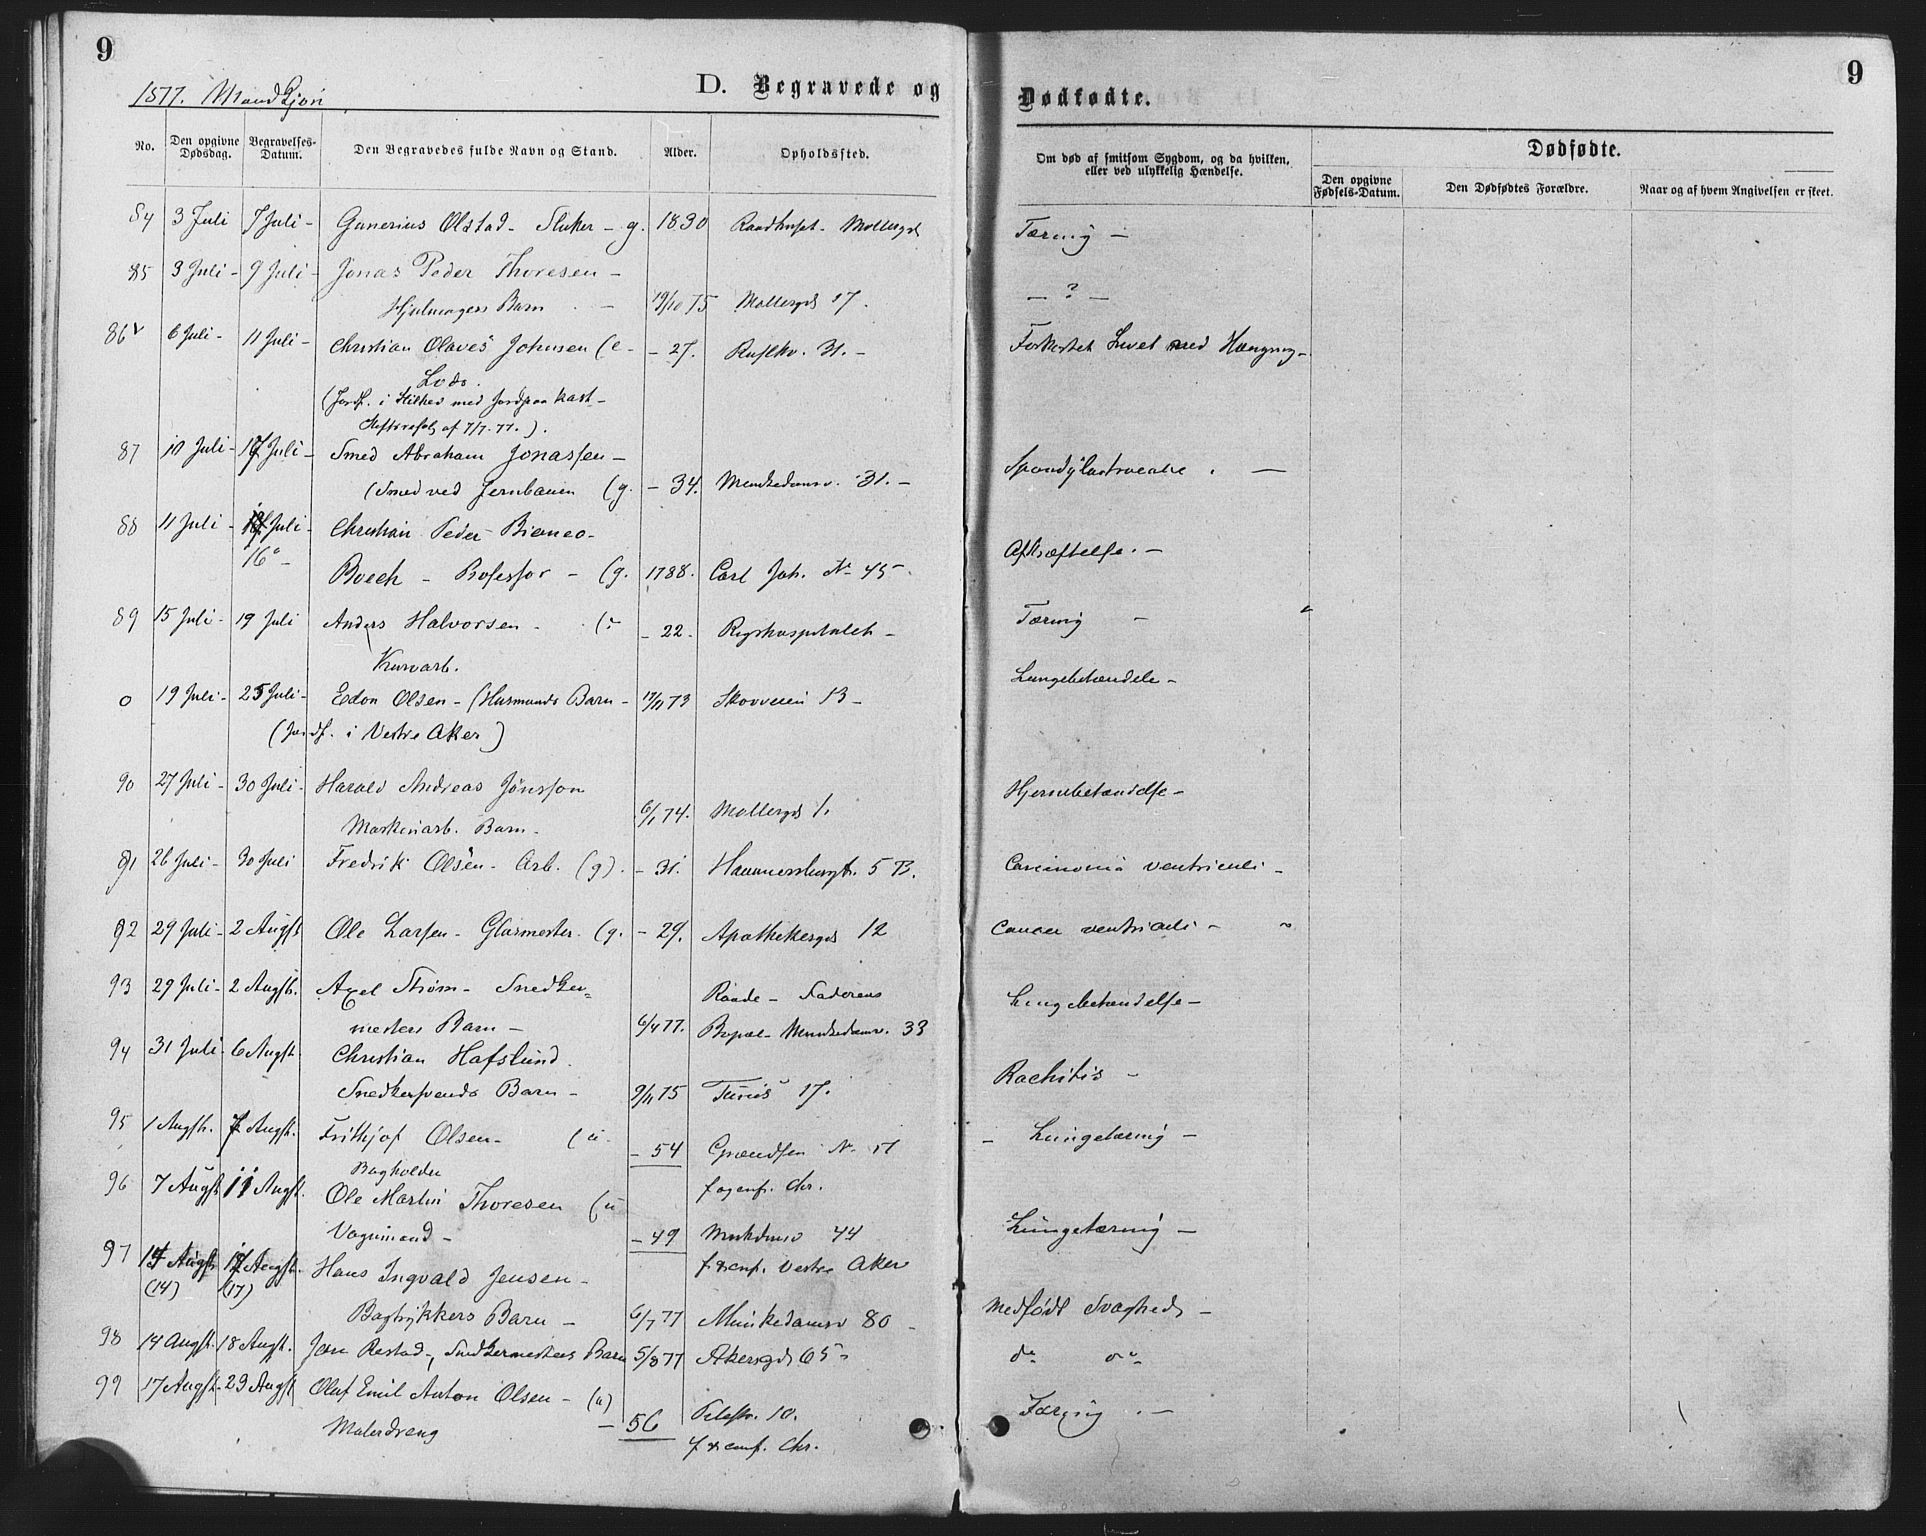 9
9
1877. Mandkjøn
D. Begravede og
Dødfødte.
No.
Den opgivne Dødsdag.
Begravelses-Datum.
Den Begravedes fulde Navn og Stand.
Alder.
Opholdssted.
Om død af smitsom Sygdom, og da hvilken, eller ved ulykkelig Hændelse.
Dødfødte.
Den opgivne Fødsels-Datum.
Den Dødfødtes Forældre.
Naar og af hvem Angivelsen er skeet.
84 3 Juli 7 Juli - Gunerius Olstad - - g. 1830 Raadhuset - Møllergd Tæring -
85 3 Juli - 9 Juli - Jonas Peder Thoresen -
Barn - 19/10 75 Møllergd 17. - ? -
86 6 Juli - 11 Juli - Christian Olaves Johnsen (e - - 27. 31. - Forkortet Livet med Hængning -
Lods.
(Jordf. i Stilhed med Jordpaakast -
af 7/7. 77.).
87 10 Juli - 17 Juli - Smed Abraham Jonassen -
(Smed ved Jernbanen (g. - 34. Munkedamsv. 31. -
88 11 Juli - Juli - Christian Peder Bianco -
16 -
Boeck - Professor - (g. 1788. Carl Joh. No 45 - Afkræftelse. -
89 15 Juli - 19 Juli Anders Halvorsen - (u - 22 - Rigshospitalet - Tæring -
0 19 Juli - 25 Juli - Edon Olsen - (Husmands Barn - 17/11 73 Skovveien 13 - Lungebetændelse -
(Jordf. i Vestre Aker)
90 27 Juli - 30 Juli - Harald Andreas Jönsson
Maskinarb. Barn - 6/1 74. Møllergd 1. Hjernebetændelse -
91 26 Juli - 30 Juli Fredrik Olsen - Arb. (g). - 31. Hammersborggt. 5 B. Carcinoma ventriculi -
92 29 Juli - 2 Augst Ole Larsen - Glasmester - (g. - 29. Apothekergd 12 Cancer ventriculi -
93 29 Juli - 2 Augst. Axel Strøm - Snedker-
mesters Barn - 6/4 77. Raade - Faderens
Bopæl - Munkedamsv. 33 Lungebetændelse -
94 31 Juli 6 Augst. Christian Hafslund.
Snedkersvends Barn - 9/11 75 17. Rachitis -
95 1 Augst. 7 Augst. Frithjof Olsen - (u. - 54 Grændsen No 17 - Lungetæring -
Bogholder
96 7 Augst 11 Augst. Ole Martin Thoresen (u
Vognmand - - 49 44 Lungetæring -
f. Vestre Aker
97 Augst. Augst. Hans Ingvald Jensen -
(14) (17)
Bogtrykkers Barn - 6/7 77 Munkedamsv 80 - Medfødt Svaghed -
98 14 Augst. 18 Augst. Restad -, Snedkermesters Barn 5/8 77 Akersgd 65 - do do -
99 17 Augst - 23 Augst Oluf Emil Anton Olsen - (u)
Malerdreng - 56 Pilestr. 10. Tæring. -
f. Chr.